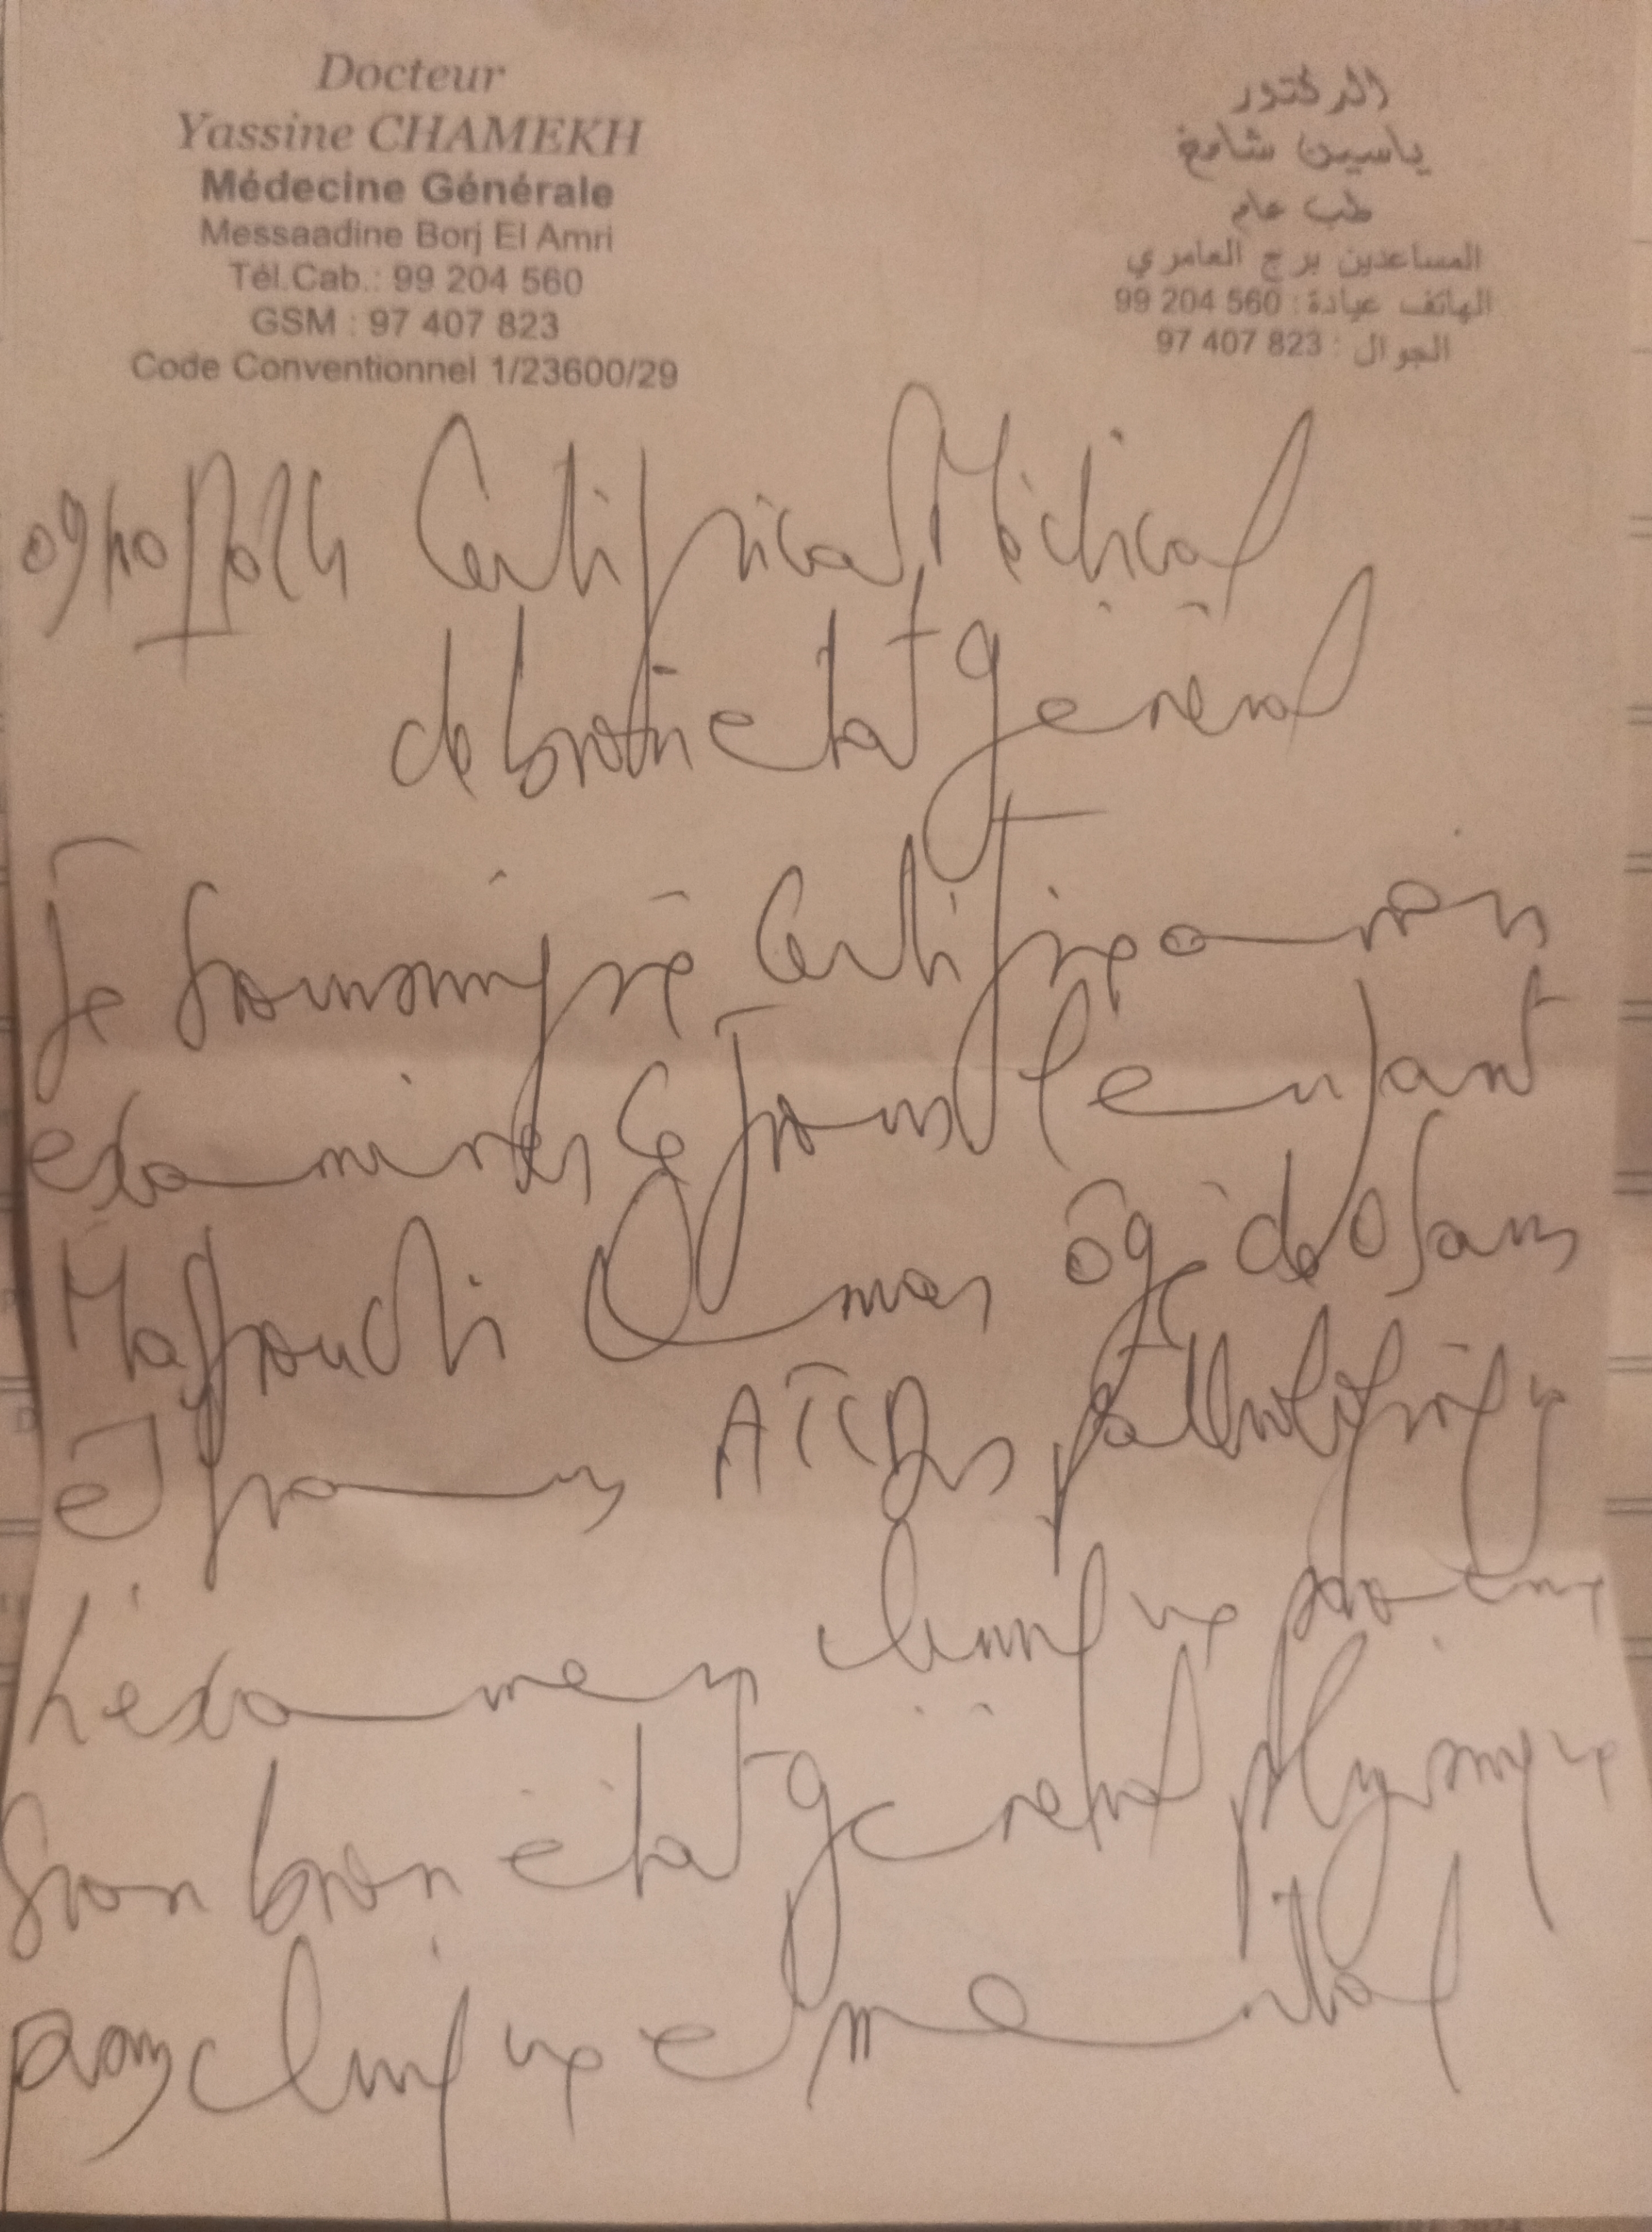 Docteur
Yassine CHAMEKH
Médecine Générale
Messaadine Borj El Amri
Tél.Cab.: 99 204 560
GSM : 97 407 823
Code Conventionnel 1/23600/29
الدكتور
ياسين شامخ
طب عام
المساعدين برج العامري
الهاتف عيادة : 99 204 560
الجوال : 97 407 823
Certificat Médical
de bon état général
Je soussigné Certifie avoir
examiner ce jour l'enfant
âgé de ans
et sans ATCDs pathologique
L'examen clinique
son bien état général physique
psychique et mental